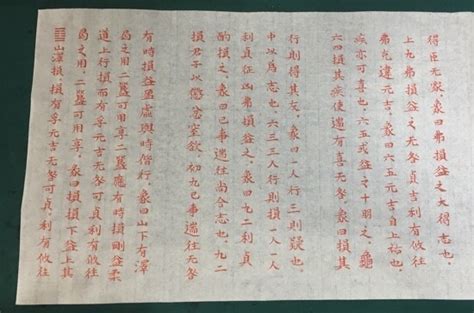 ䷨山澤損，損有孚元吉无咎可貞，利有攸往
曷之用，二簋可用享，彖曰損損下益上其
道上行損而有孚元吉无咎可貞利有攸往
曷之用，二簋可用享，二簋應有時損剛益柔
有時損益盈虛與時偕行，象曰山下有澤
損君子以懲忿窒欲，初九已事遄往无咎
酌損之，象曰已事遄往尚合志也，九二
利貞征凶弗損益之，象曰九二利貞
中以為志也，六三三人行則損一人一人
行則得其友，象曰一人行三則疑也，
六四損其疾使遄有喜无咎，象曰損其
疾亦可喜也，六五或益，之十朋之，龜
弗克違元吉，象曰六五元吉自上祐也，
上九弗損益之无咎貞吉利有攸往
得臣无家，象曰弗損益之大得志也，